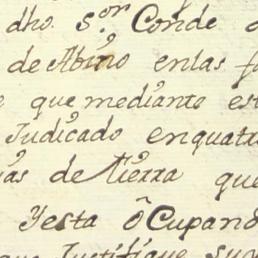 dho. s.or Conde
de Abino enlas
que mediante est
Judicado enquatr
as de tierra que
Yesta Ocupand
Justifique